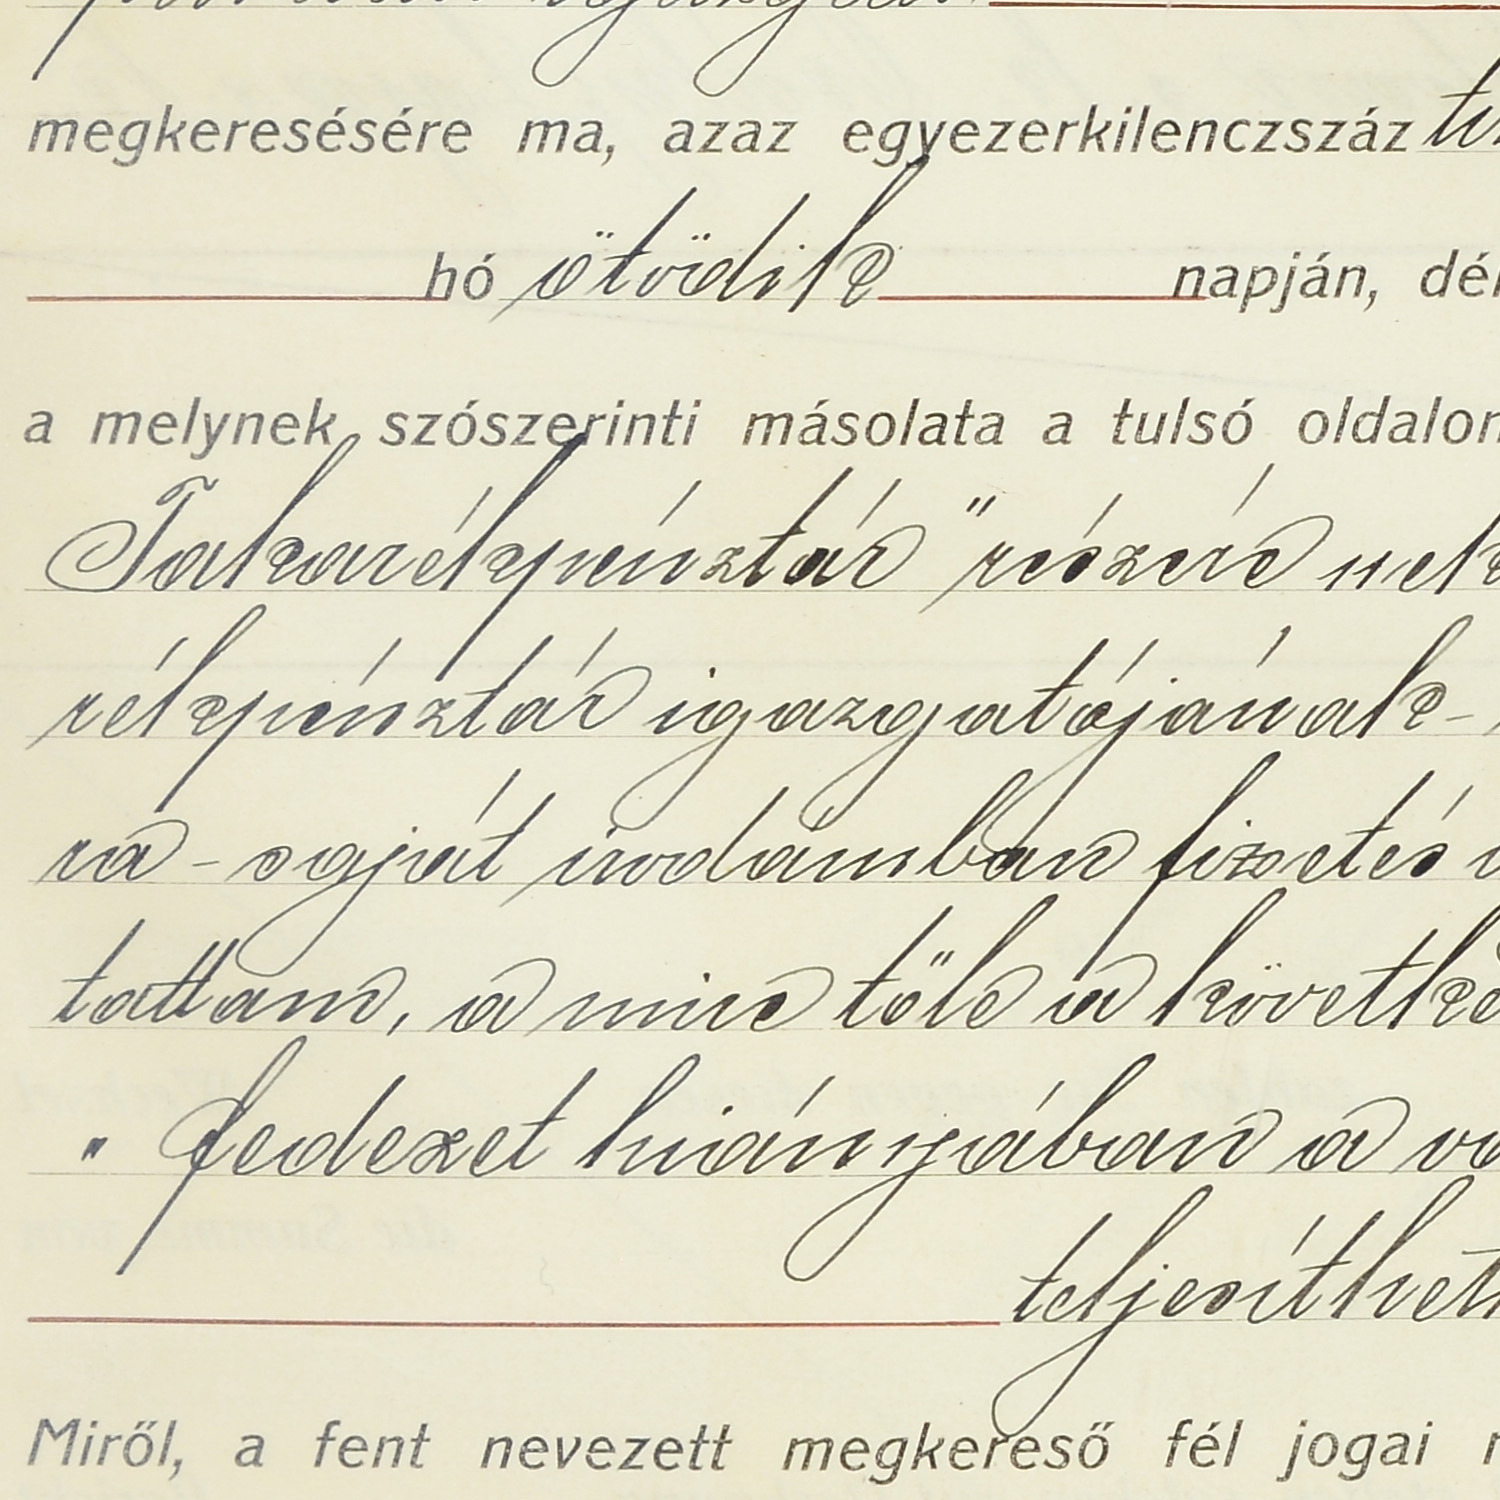 megkeresésére ma, azaz egyezerkilenczszáz
hó ötödik napján, dél
a melynek szószerinti másolata a tulsó oldalon
Takarékpénztár" részére nek
rékpénztár igazgatójának-
ra - saját irodámban fizetés
tattam, a mire tőle a követke
" fedezet hiányában a vá
teljesíthet
Miről, a fent nevezett megkereső fél jogai